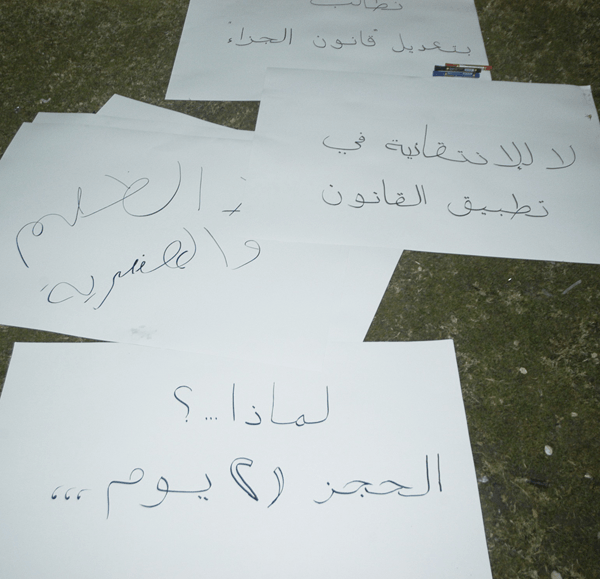 نطالب
بتعديل قانون الجزاء
لا للإنتقائية في
تطبيق القانون
الظلم
والعنصرية
لماذا...؟
الحجز ٢١ يوم ,,,